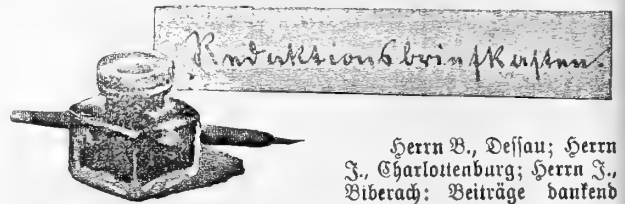 Redaktionsbriefkasten.
Herrn B., Dessau; Herrn
J., Charlottenburg; Herrn J.,
Biberach: Beiträge dankend